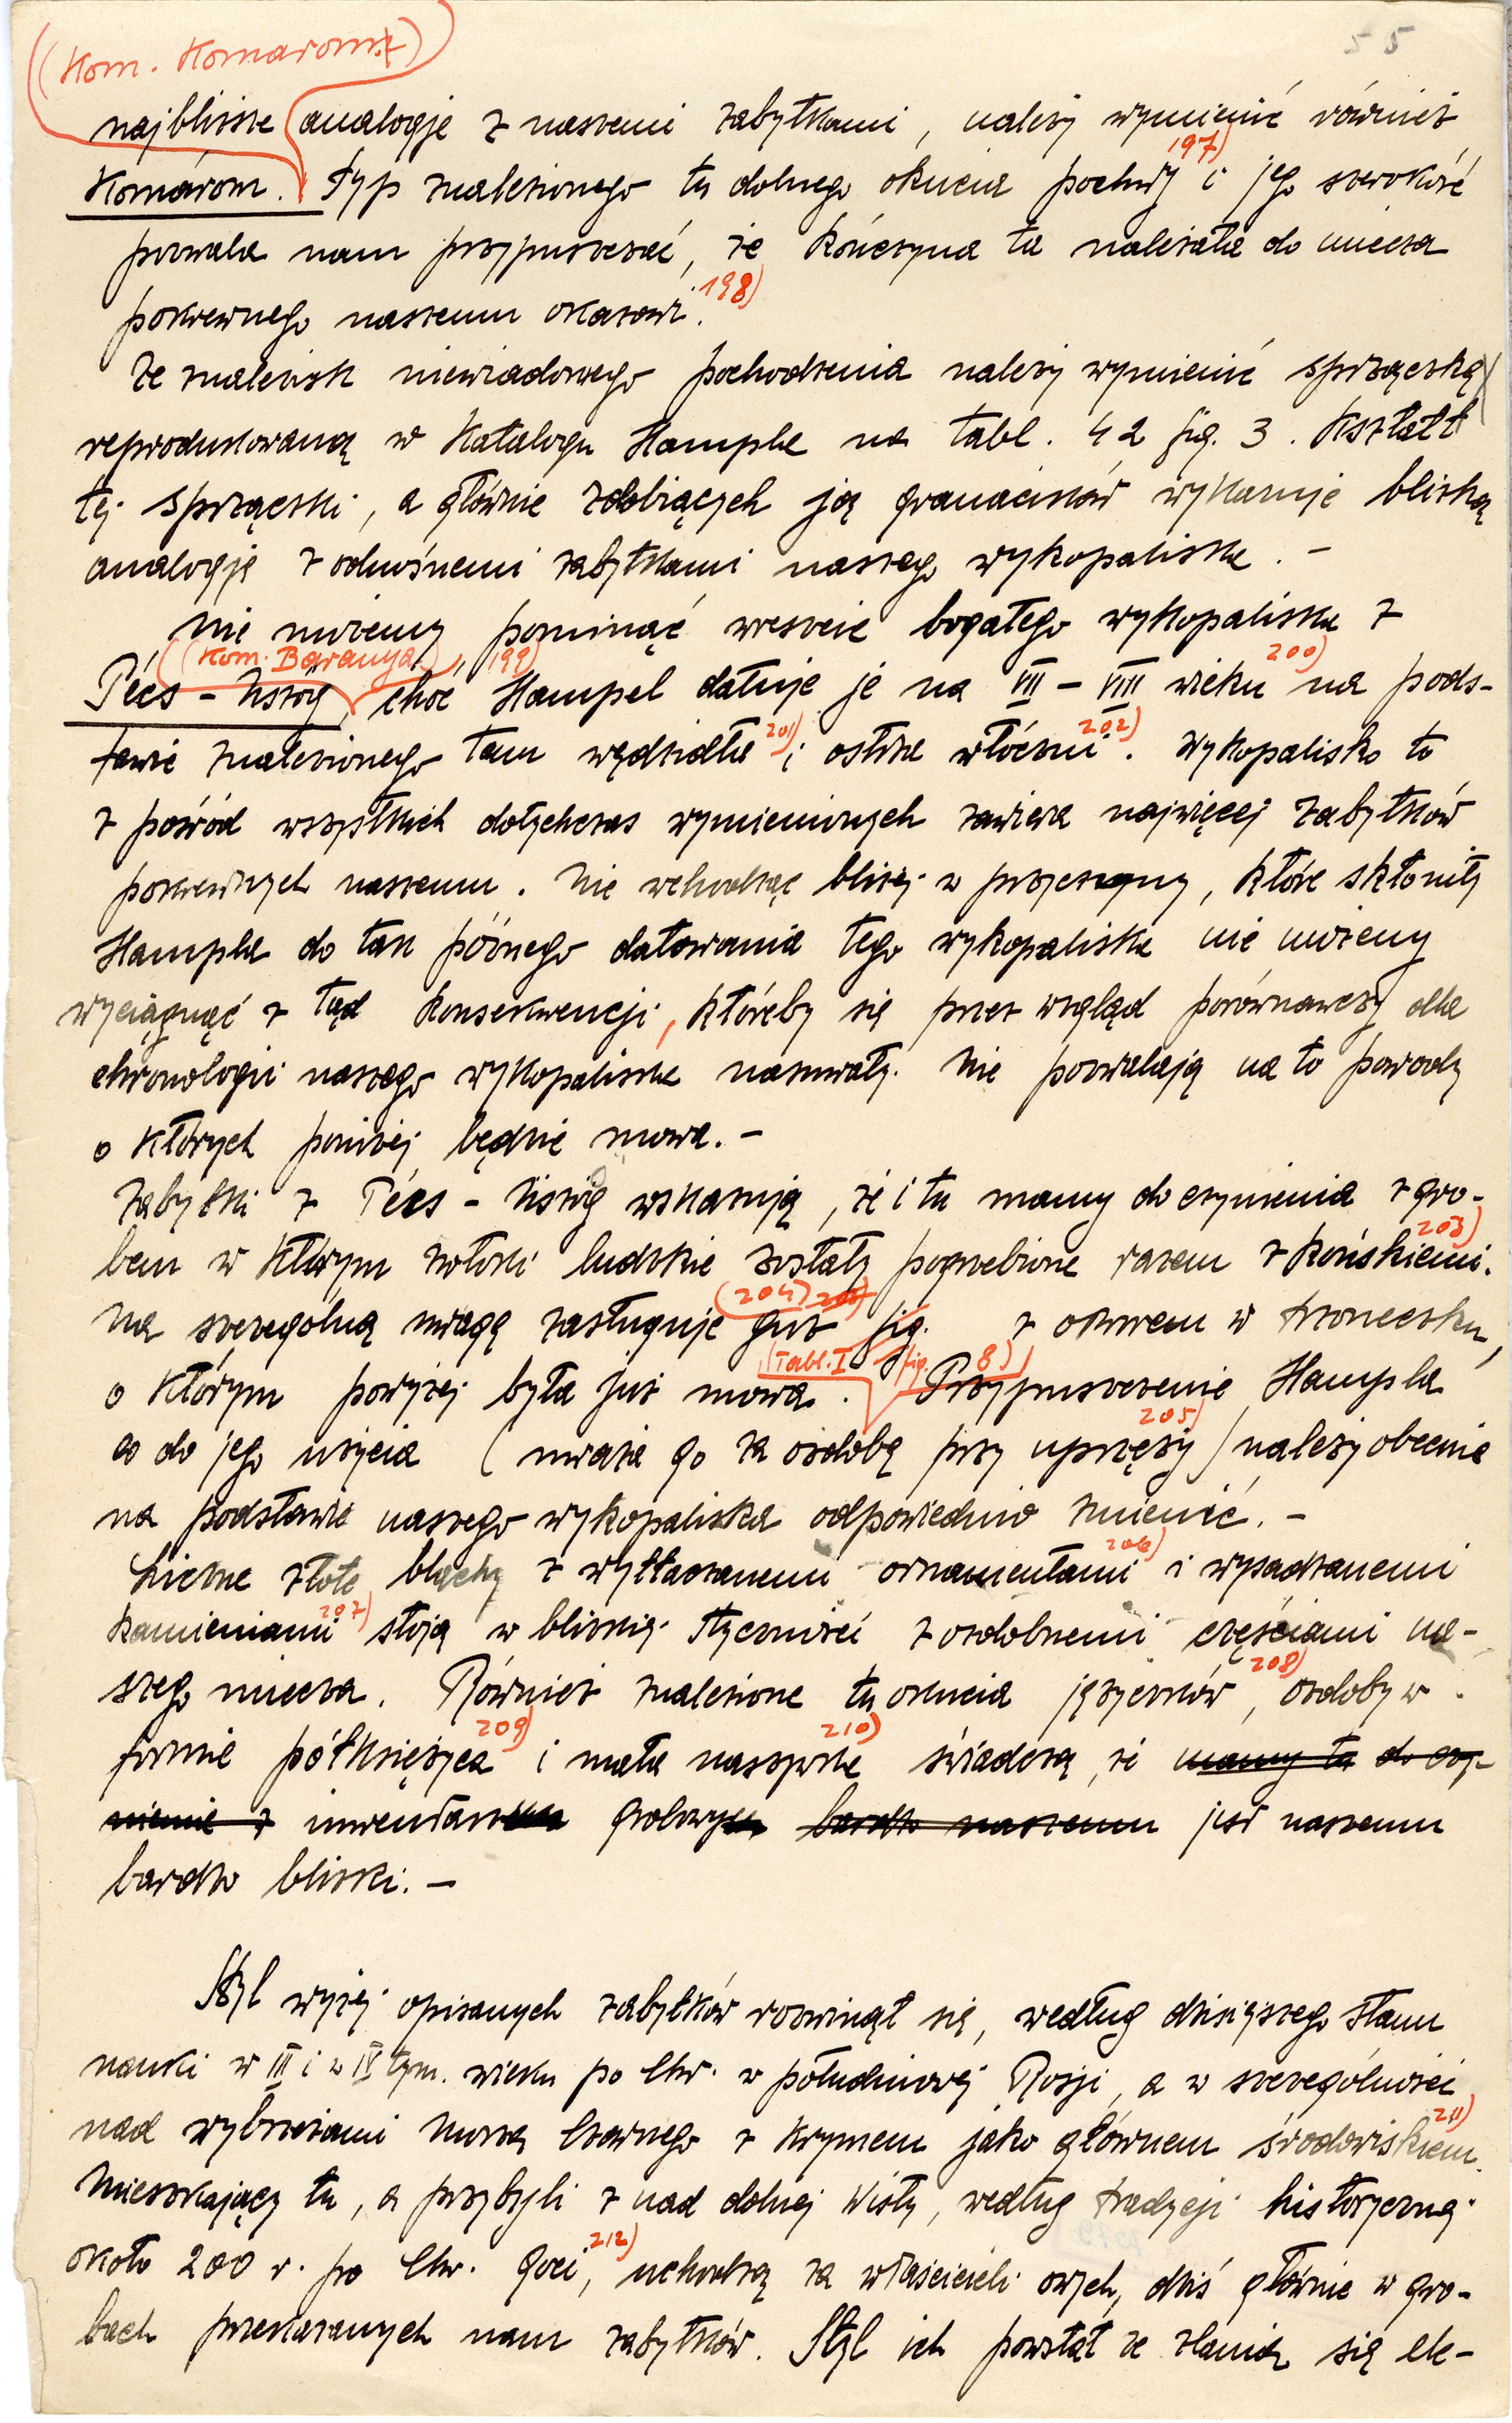 55
(Kom. Komarom.)
najbliższe analogje z naszemi zabytkami, należy wymienić również
Komárom. Typ znalezionego tu dolnego okucia pochwy 197) i jego szerokość
pozwala nam przypuszczać, że kończyna ta należała do miecza
pokrewnego naszemu okazowi. 198)
Ze znalezisk niewiadomego pochodzenia należy wymienić sprzączkę
reprodukowaną w Katalogu Hampla na tabl. 42 fig. 3. Kształt
tej sprzączki, a głównie zdobiących ją granacików wykazuje bliską
analogję z odnośnemi zabytkami naszego wykopaliska. —
Nie możemy pominąć wreszcie bogatego wykopaliska z
(Kom. Baranya) 199) 200)
Pécs - Üszög, choć Hampel datuje je na VII – VIII wieku na pods-
tawie znalezionego tam wędzidła 201) i ostrza włóczni 202). Wykopalisko to
z pośród wszystkich dotychczas wymienionych zawiera najwięcej zabytków
pokrewnych naszemu. Nie wchodząc bliżej w przyczyny, które skłoniły
Hampla do tak późnego datowania tego wykopaliska nie możemy
wyciągnąć z tąd konsekwencji, któreby się przez wzgląd porównawczy dla
chronologii naszego wykopaliska nasuwały. Nie pozwalają na to powody
o których poniżej będzie mowa. —
Zabytki z Pécs - Üszög wskazują, że i tu mamy do czynienia z gro-
bem w którym zwłoki ludzkie zostały pogrzebione razem z końskiemi. 203)
Na szczególną uwagę zasługuje guz 204) fig. z otworem w trzoneczku,
o którym powyżej była już mowa. (Tabl. I fig. 8) Przypuszczenie Hampla
co do jego użycia (uważa go za ozdobę przy uprzęży 205)) należy obecnie
na podstawie naszego wykopaliska odpowiednio zmienić. —
Liczne złote blachy z wytłaczanemi ornamentami 206) i wysadzanemi
kamieniami 207) stoją w bliskiej styczności z ozdobnemi częściami na-
szego miecza. Również znalezione tu okucia języczków 208), ozdoby w
formie półksiężyca 209) i mała naszywka 210) świadczą, że mamy tu do czy-
nienia z inwentarz grobowy bardzo naszemu jest naszemu
bardzo bliski. —
Styl wyżej opisanych zabytków rozwinął się, według dzisiejszego stanu
nauki w III i w IV tym. wieku po Chr. w południowej Rosji, a w szczególności
nad wybrzeżami Morza Czarnego z Krymem jako głównem środowiskiem. 211)
Mieszkający tu, a przybyli z nad dolnej Wisły, według tradycji historycznej
około 200 r. po Chr. Goci, 212) uchodzą za właścicieli owych, dziś głównie w gro-
bach przekazanych nam zabytków. Styl ich powstał ze zlania się ele-